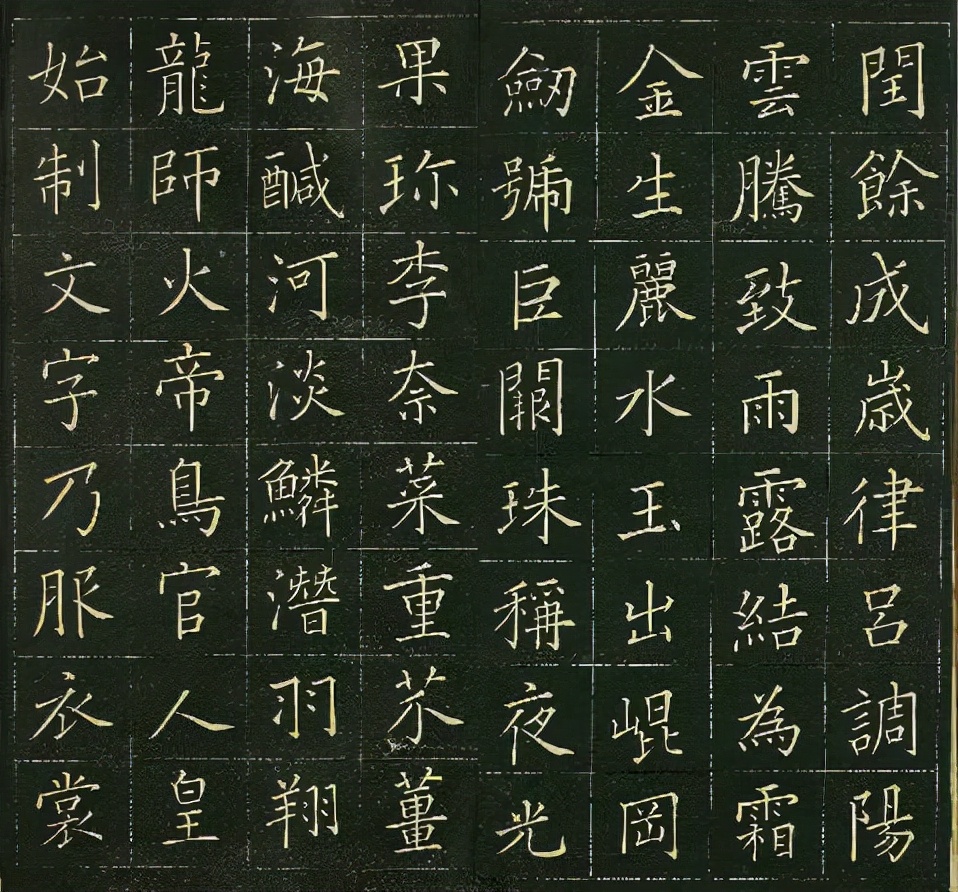 閏餘成歲律呂調陽
雲騰致雨露結為霜
金生麗水玉出崐岡
劒號巨闕珠稱夜光
果珎李奈菜重芥薑
海鹹河淡鱗潛羽翔
龍師火帝鳥官人皇
始制文字乃服衣裳